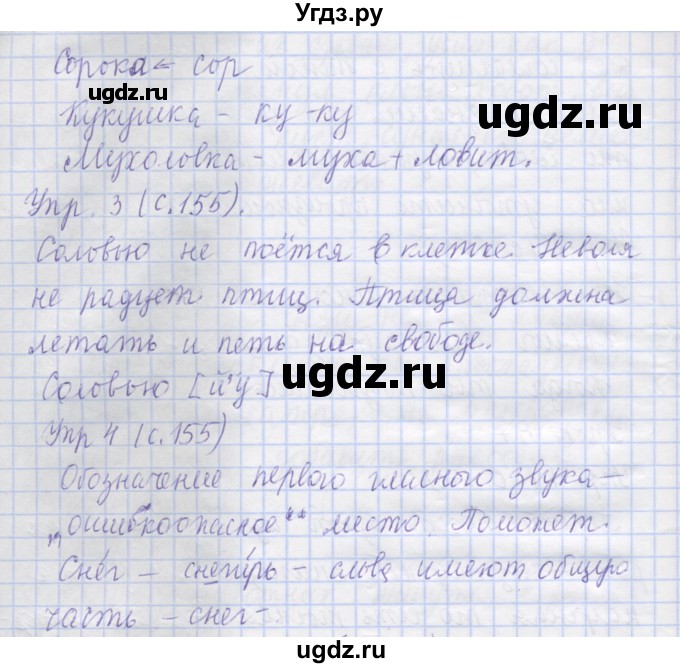 Угдз.ру
Сорока ← сор
ugdz.ru
ugdz.ru
Кукушка - ку-ку
Мухоловка - муха + ловит.
Упр. 3 (с.155).
Соловью не поётся в клетке. Неволя
не радует птиц. Птица должна
летать и петь на свободе.
ugdz.ru
Соловью [й'у]
Упр 4 (с.155)
Обозначение первого гласного звука –
„ошибкоопасное“ место. Поможет.
Снéг – снегúрь – слова имеют общую
часть – снег-.
ugdz.ru